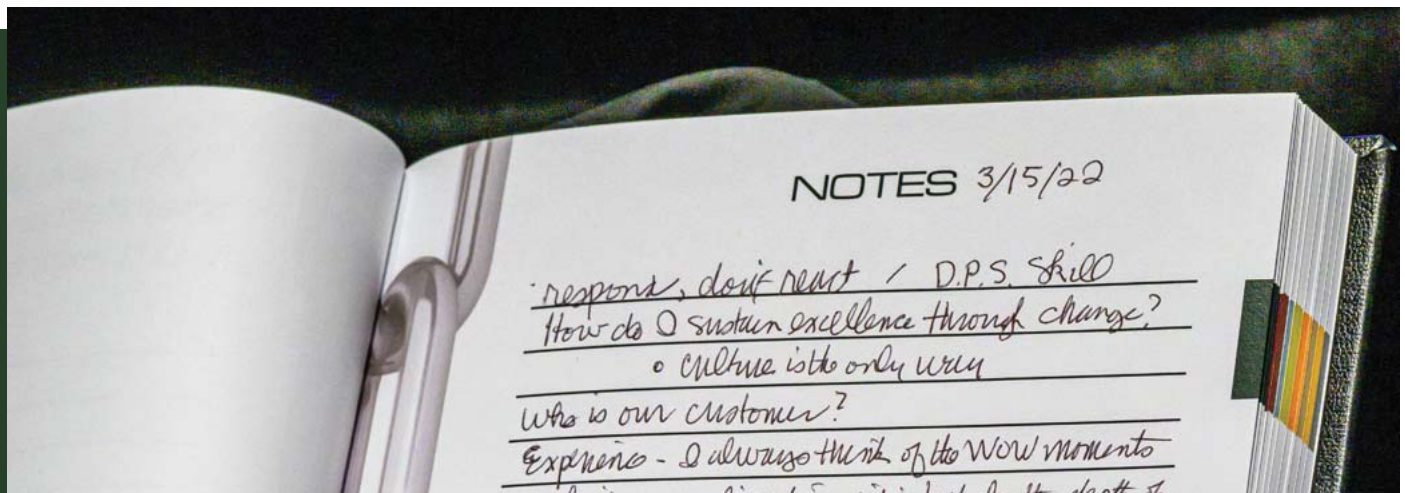 NOTES 3/15/22
respond, don't react / D.P.S. Skill
How do I sustain excellence through change?
• Culture is the only way
Who is our customer?
Experience - I always think of the WOW moments